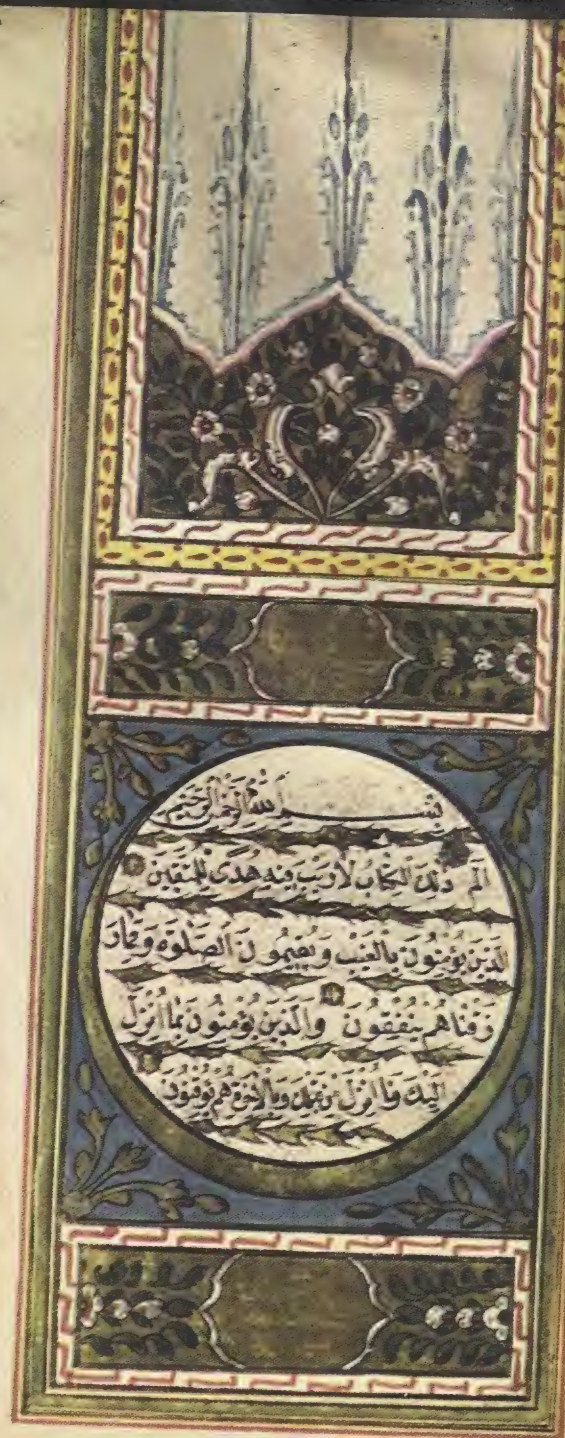 بِسْمِ اللهِ الرَّحْمٰنِ الرَّحِيمِ
الم ذٰلِكَ الْكِتَابُ لَا رَيْبَ فِيهِ هُدًى لِلْمُتَّقِينَ
الَّذِينَ يُؤْمِنُونَ بِالْغَيْبِ وَيُقِيمُونَ الصَّلٰوةَ وَمِمَّا رَ
زَقْنَاهُمْ يُنْفِقُونَ وَالَّذِينَ يُؤْمِنُونَ بِمَا أُنْزِلَ
إِلَيْكَ وَمَا أُنْزِلَ مِنْ قَبْلِكَ وَبِالْآخِرَةِ هُمْ يُوقِنُونَ